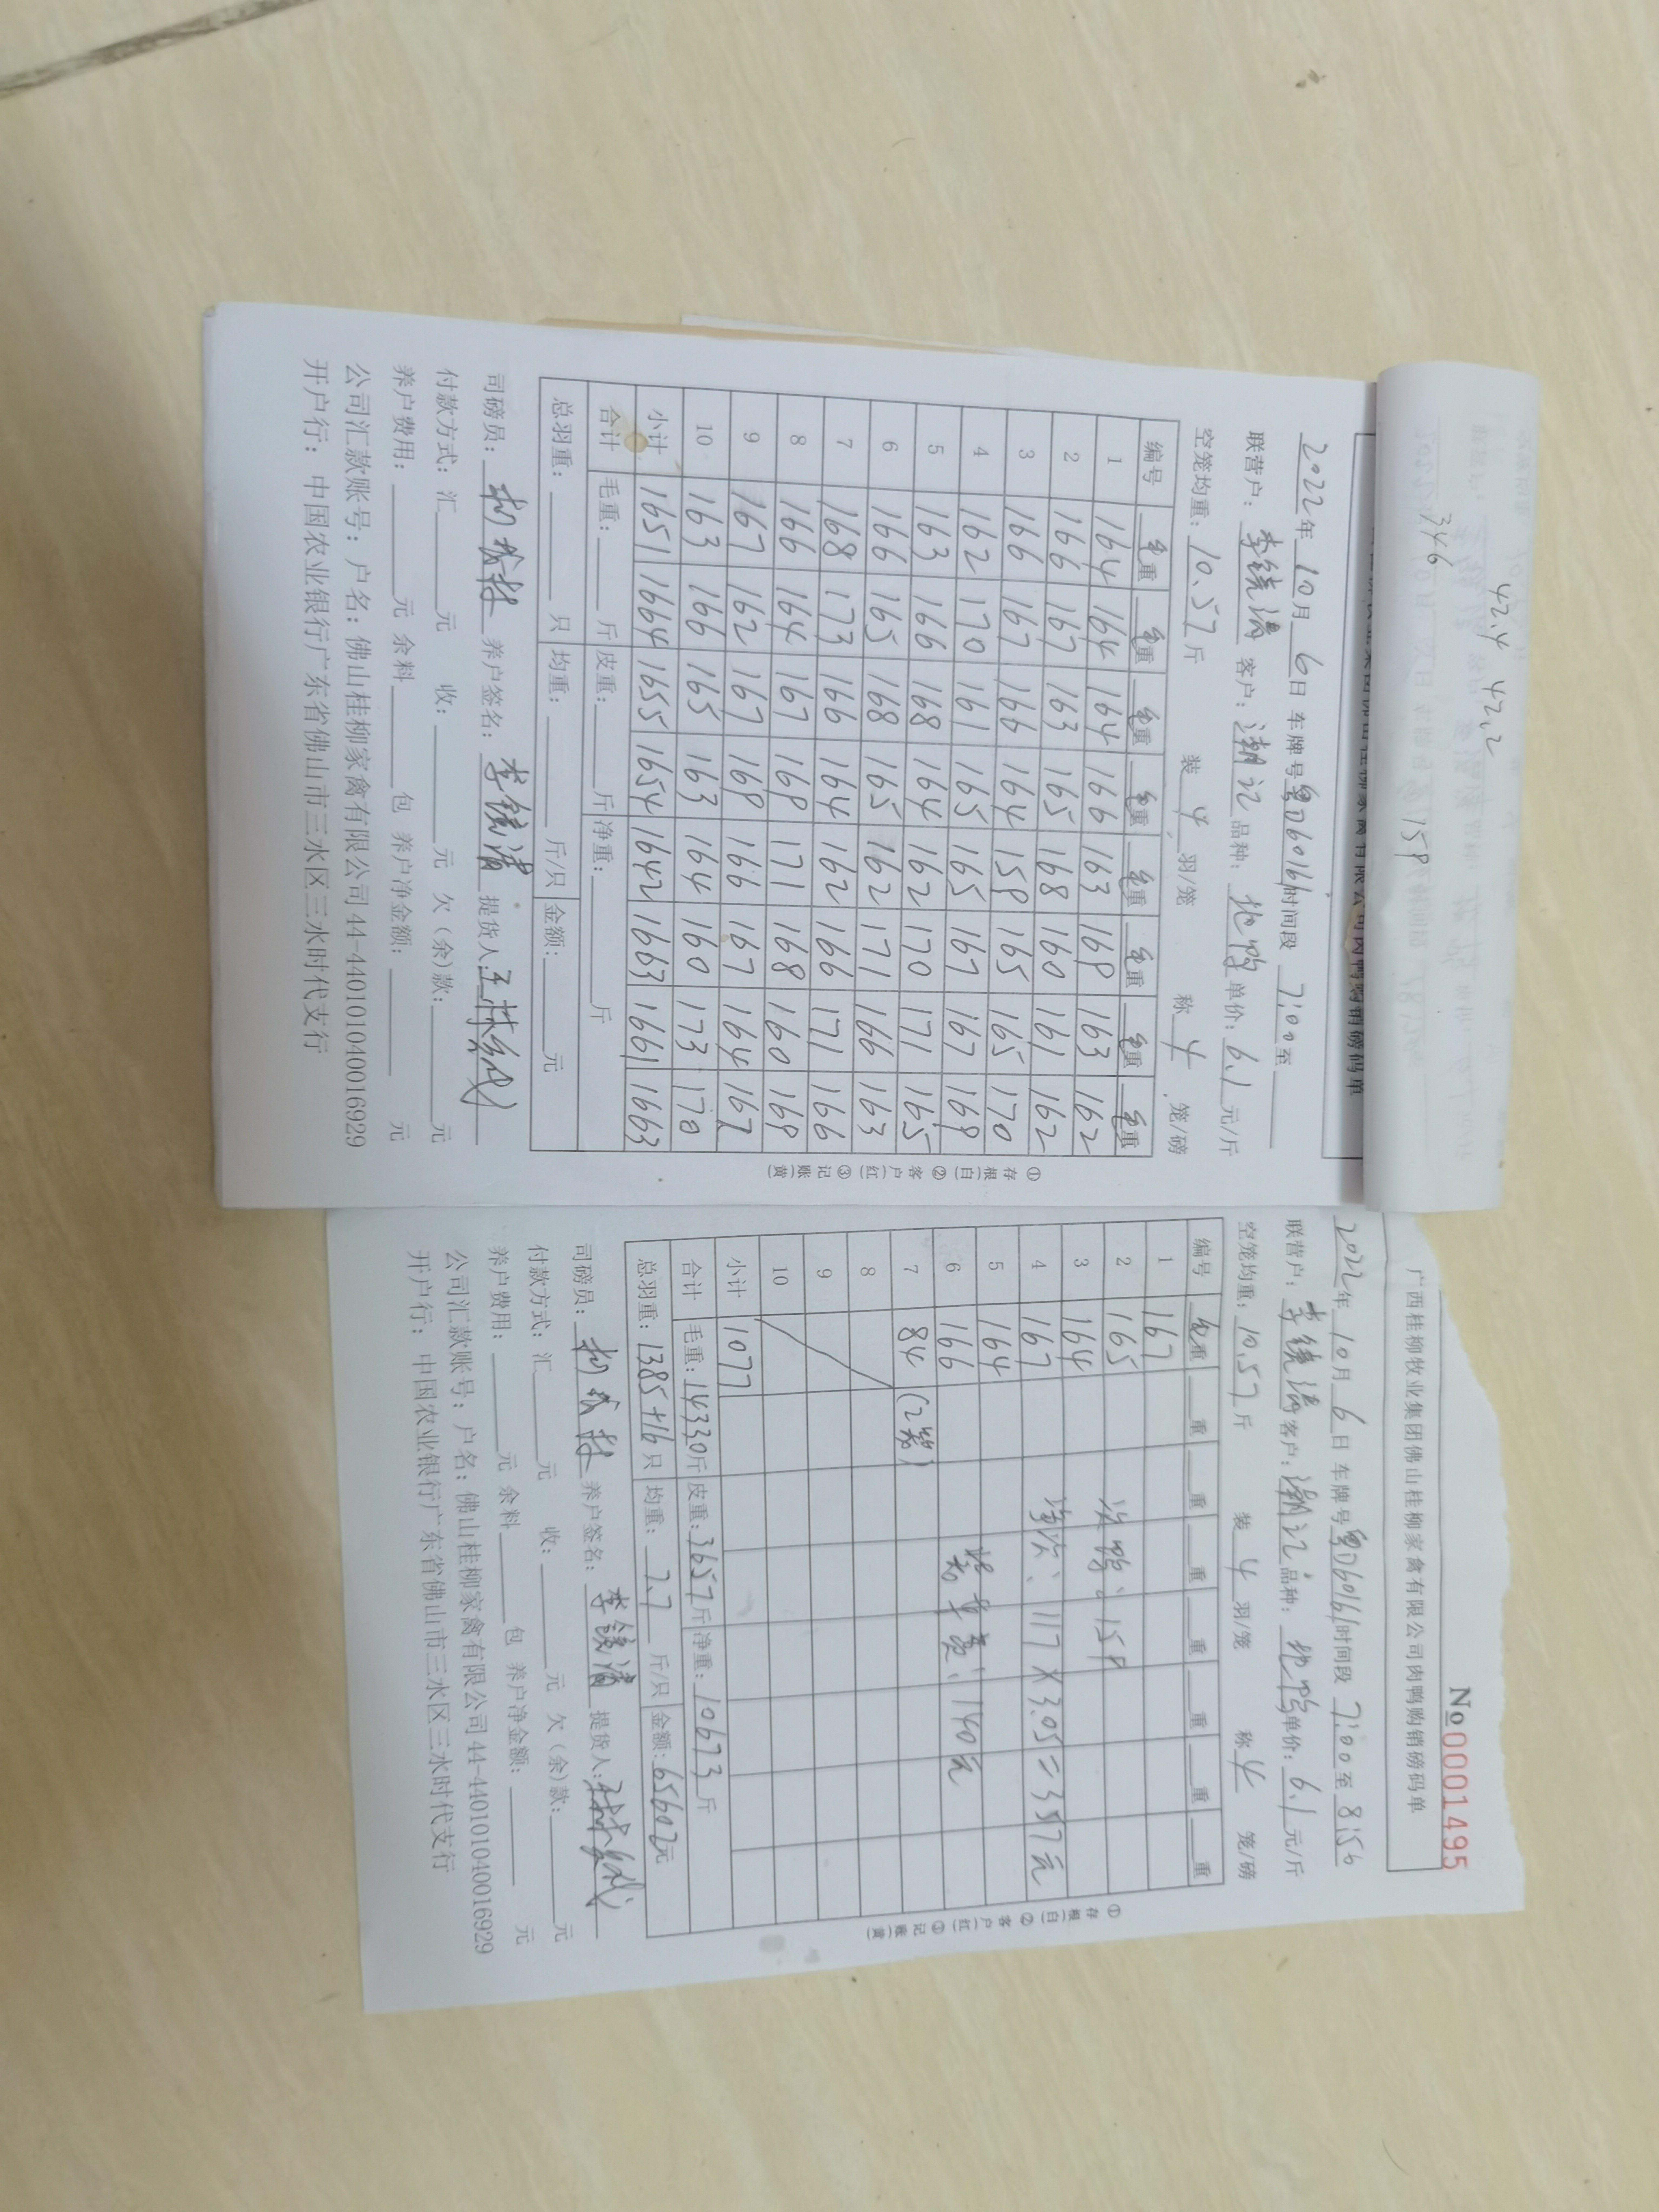 346
42.4 42.2
158
2022年10月6日 车牌号粤 时间段 7:00至
联营户: 李镜清 客户: 潮记 品种: 单价: 6.1 元/斤
空笼均重: 10.57 斤 装 4 羽/笼 称 4 笼/磅
编号 毛重 毛重 毛重 毛重 毛重 毛重 毛重 毛重
1 164 164 164 166 163 168 163 162
2 166 167 163 165 168 160 161 162
3 166 167 166 164 158 165 165 170
4 162 170 161 165 165 167 167 168
5 163 166 168 164 162 170 171 165
6 166 165 168 165 162 171 166 163
7 168 173 166 164 162 166 171 166
8 166 164 167 168 171 168 160 168
9 167 162 167 168 166 167 164 167
10 163 166 165 163 164 160 173 170
小计 1651 1664 1655 1654 1642 1663 1661 1663
合计 毛重: 斤 皮重: 斤 净重: 斤
总羽重: 只 均重: 斤/只 金额: 元
司磅员: 养户签名: 李镜清 提货人:
付款方式: 汇 元 收: 元 欠(余)款: 元
养户费用: 元 余料 包 养户净金额: 元
公司汇款账号: 户名: 佛山桂柳家禽有限公司 44-440101040016929
开户行: 中国农业银行广东省佛山市三水区三水时代支行
①存根(白) ②客户(红) ③记账(黄)
No 00001495
广西桂柳牧业集团佛山桂柳家禽有限公司肉鸭购销磅码单
2022年10月6日 车牌号粤 时间段 7:00至8:56
联营户: 李镜清 客户: 潮记 品种: 单价: 6.1 元/斤
空笼均重: 10.57 斤 装 4 羽/笼 称 4 笼/磅
编号 毛重 重 重 重 重 重 重 重
1 167
2 165 次鸭: 158
3 164
4 167 净次: 117×3.05=357元
5 164
6 166 140元
7 84 (2笼)
8
9
10
小计 1077
合计 毛重: 14330斤 皮重: 3657斤 净重: 10673斤
总羽重: 1385+16只 均重: 7.7 斤/只 金额: 65602元
司磅员: 养户签名: 李镜清 提货人:
付款方式: 汇 元 收: 元 欠(余)款: 元
养户费用: 元 余料 包 养户净金额: 元
公司汇款账号: 户名: 佛山桂柳家禽有限公司 44-440101040016929
开户行: 中国农业银行广东省佛山市三水区三水时代支行
①存根(白) ②客户(红) ③记账(黄)